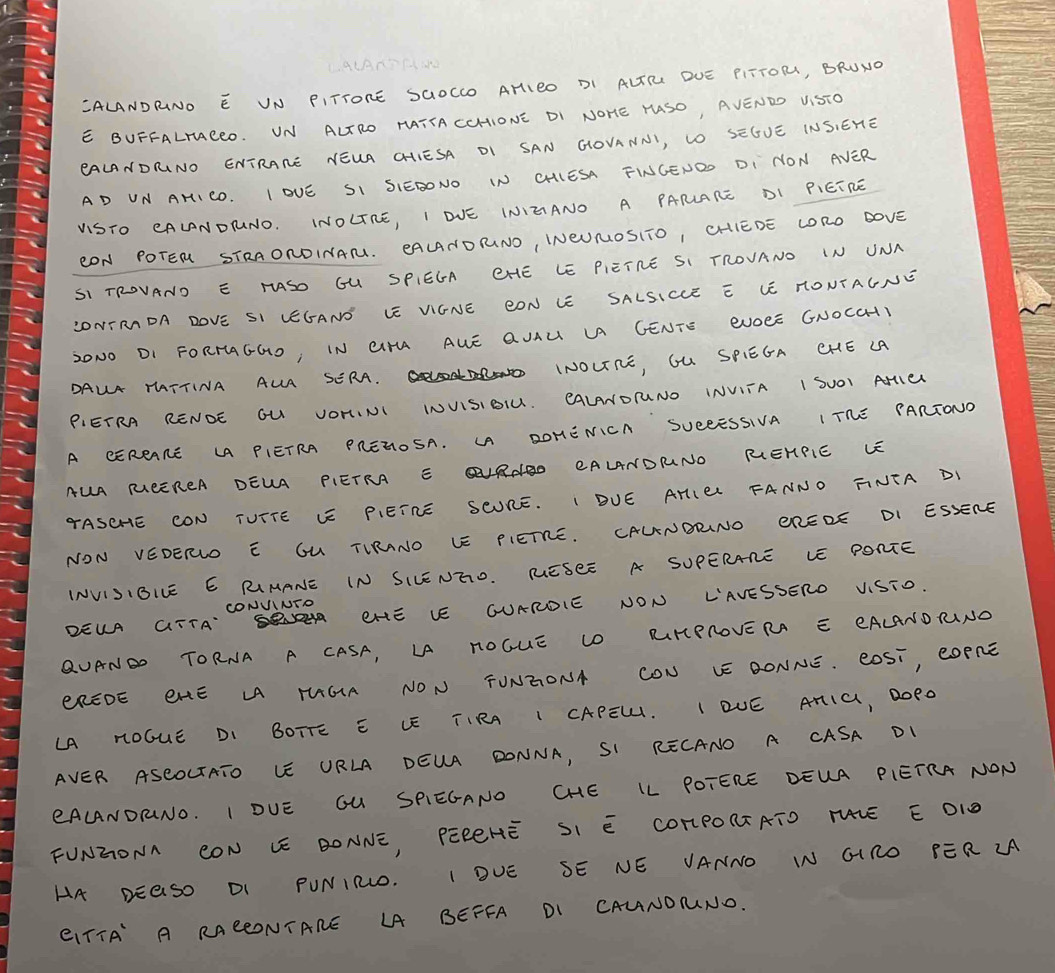 CALANDRINO
CALANDRINO È UN PITTORE SCIOCCO AMICO DI ALTRI DUE PITTORI, BRUNO
E BUFFALMACCO. UN ALTRO MATTACCHIONE DI NOME MASO, AVENDO VISTO
CALANDRINO ENTRARE NELLA CHIESA DI SAN GIOVANNI, LO SEGUE INSIEME
AD UN AMICO. I DUE SI SIEDONO IN CHIESA FINGENDO DI NON AVER
VISTO CALANDRINO. INOLTRE, I DUE INIZIANO A PARLARE DI PIETRE
CON POTERI STRAORDINARI. CALANDRINO, INCURIOSITO, CHIEDE LORO DOVE
SI TROVANO E MASO GLI SPIEGA CHE LE PIETRE SI TROVANO IN UNA
CONTRADA DOVE SI LEGANO LE VIGNE CON LE SALSICCE E LE MONTAGNE
SONO DI FORMAGGIO, IN CIMA ALLE QUALI LA GENTE CUOCE GNOCCHI
DALLA MATTINA ALLA SERA. INOLTRE, GLI SPIEGA CHE LA
PIETRA RENDE GLI UOMINI INVISIBILI. CALANDRINO INVITA I SUOI AMICI
A CERCARE LA PIETRA PREZIOSA. LA DOMENICA SUCCESSIVA I TRE PARTONO
ALLA RICERCA DELLA PIETRA E CALANDRINO RIEMPIE LE
TASCHE CON TUTTE LE PIETRE SCURE. I DUE AMICI FANNO FINTA DI
NON VEDERLO E GLI TIRANO LE PIETRE. CALANDRINO CREDE DI ESSERE
INVISIBILE E RIMANE IN SILENZIO. RIESCE A SUPERARE LE PORTE
DELLA CITTA' CONVINTO CHE LE GUARDIE NON L'AVESSERO VISTO.
QUANDO TORNA A CASA, LA MOGLIE LO RIMPROVERA E CALANDRINO
CREDE CHE LA MAGIA NON FUNZIONA CON LE DONNE. COSÌ, COPRE
LA MOGLIE DI BOTTE E LE TIRA I CAPELLI. I DUE AMICI, DOPO
AVER ASCOLTATO LE URLA DELLA DONNA, SI RECANO A CASA DI
CALANDRINO. I DUE GLI SPIEGANO CHE IL POTERE DELLA PIETRA NON
FUNZIONA CON LE DONNE, PERCHÈ SI È COMPORTATO MALE E DIO
HA DECISO DI PUNIRLO. I DUE SE NE VANNO IN GIRO PER LA
CITTA' A RACCONTARE LA BEFFA DI CALANDRINO.